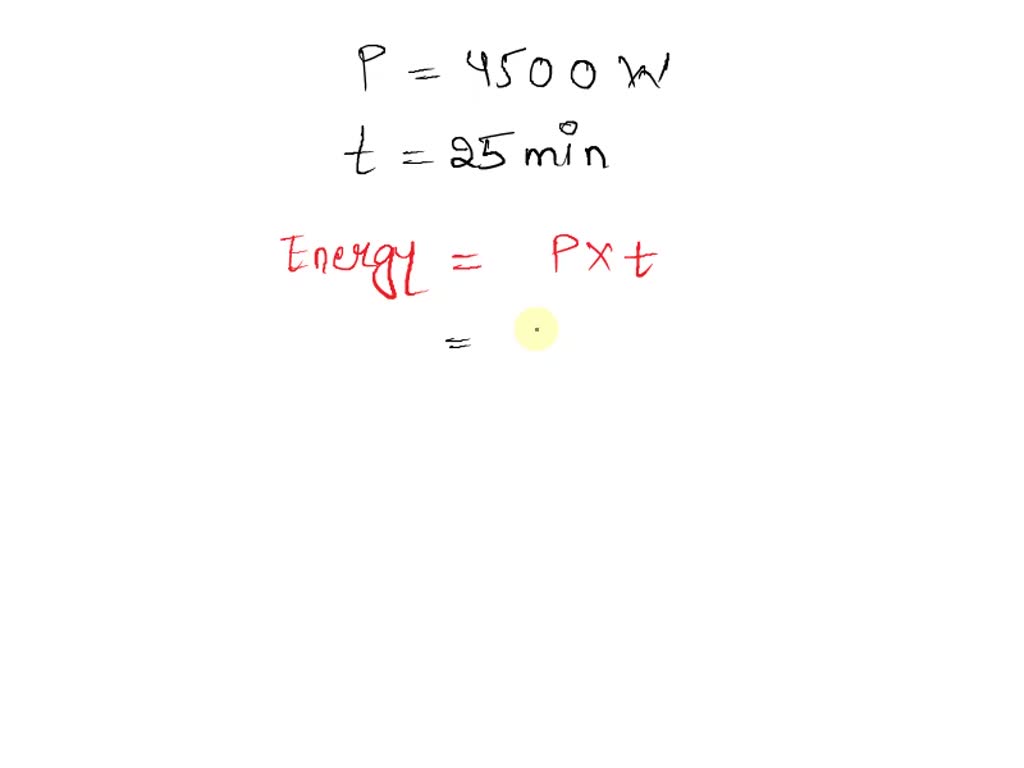 P = 4500 W
t = 25 min
Energy = P × t
=